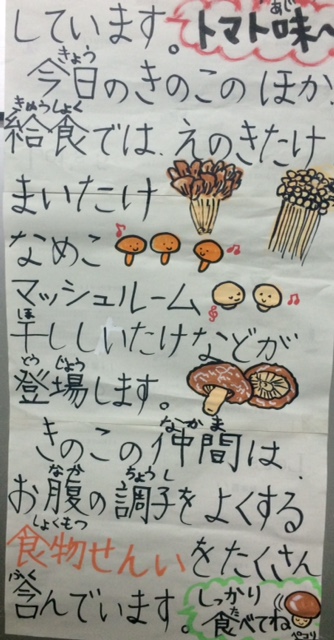 しています。トマト味〜
今日のきのこのほか
給食では、えのきたけ
まいたけ
なめこ
マッシュルーム
干ししいたけなどが
登場します。
きのこの仲間は、
お腹の調子をよくする
食物せんいをたくさん
含んでいます。しっかり
食べてね
ペコリ